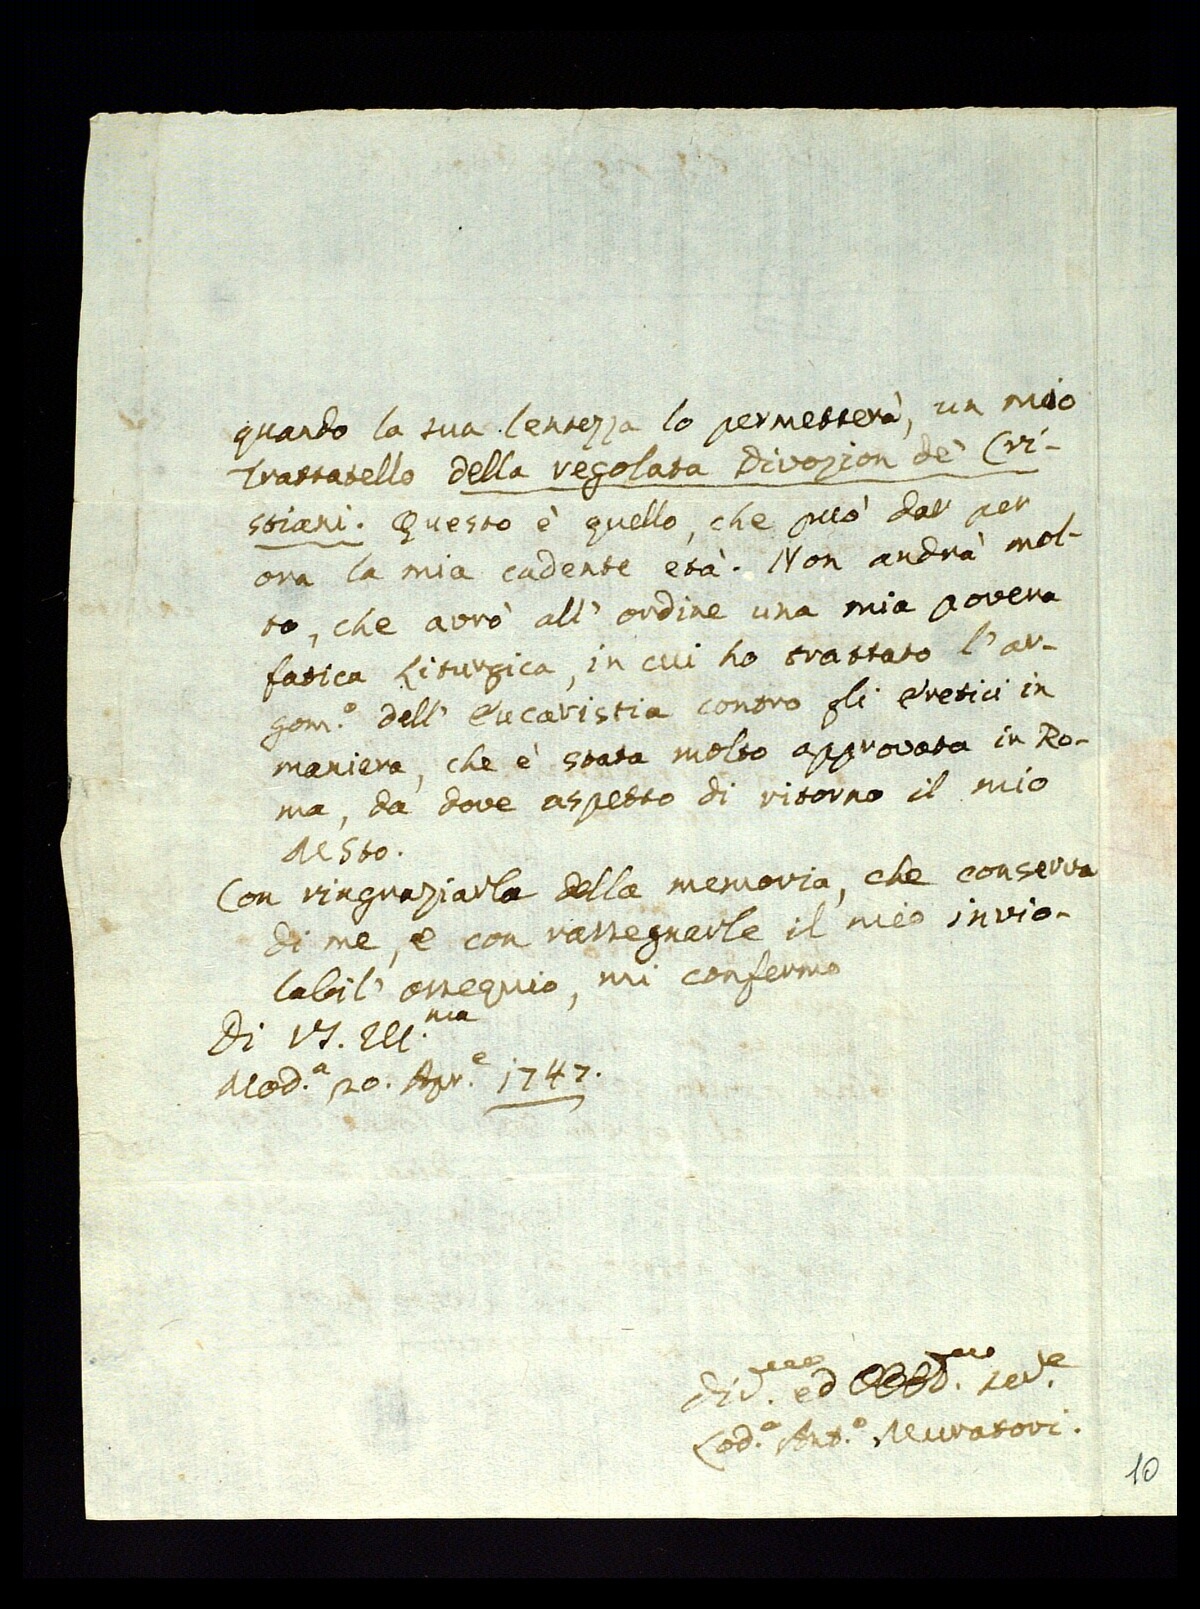 quando la sua lentezza lo permetterà, un mio
Trattatello della regolata Divozion de' Cri-
stiani. Questo è quello, che può dar per
ora la mia cadente età. Non andrà mol-
to, che avrò all' ordine una mia povera
fatica Liturgica, in cui ho trattato l'ar-
gom.º dell' Eucaristia contro gli Eretici in
maniera, che è stata molto approvata in Ro-
ma, da dove aspetto di ritorno il mio
MSto.
Con ringraziarla della memoria, che conserva
di me, e con rassegnarle il mio invio-
labil' ossequio, mi confermo
Di VS. Ill.ma
Mod.a 20. Apr.e 1747.
Div.mo ed Obb.mo serv.e
Lod.o Ant.o Muratori.
10